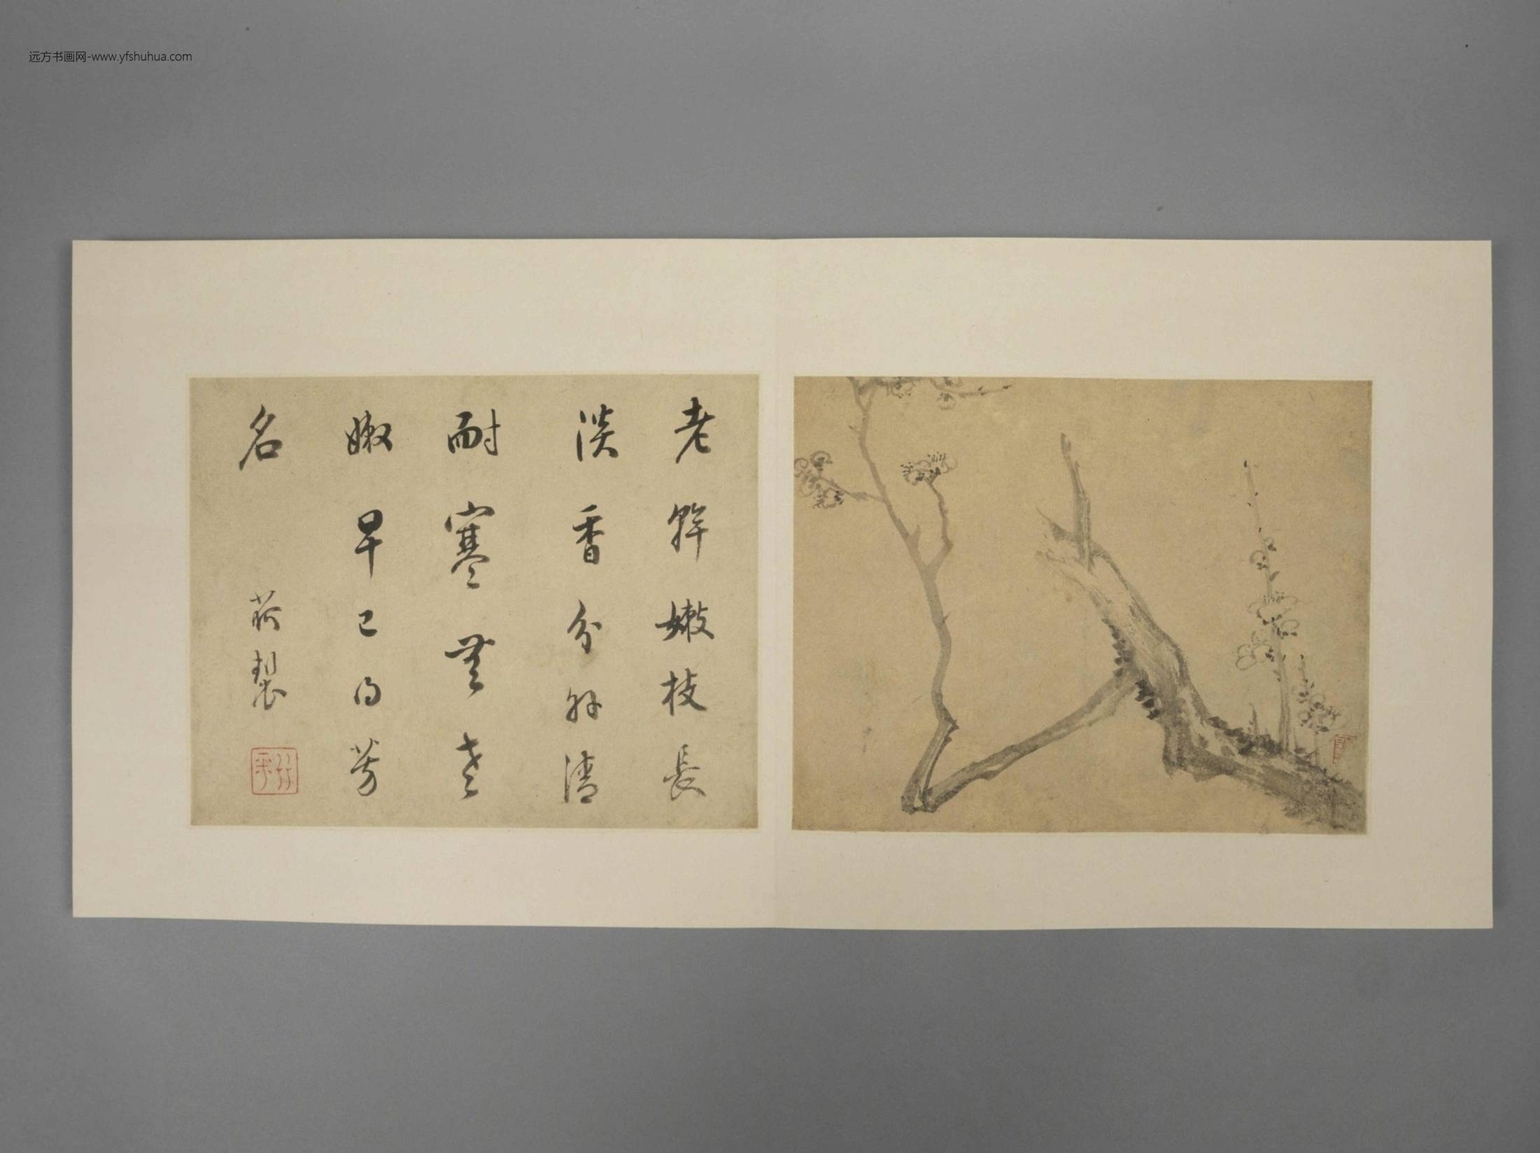 远方书画网-www.yfshuhua.com
老幹嫩枝長
淡香分外清
耐寒無老
嫩早已得芳
名